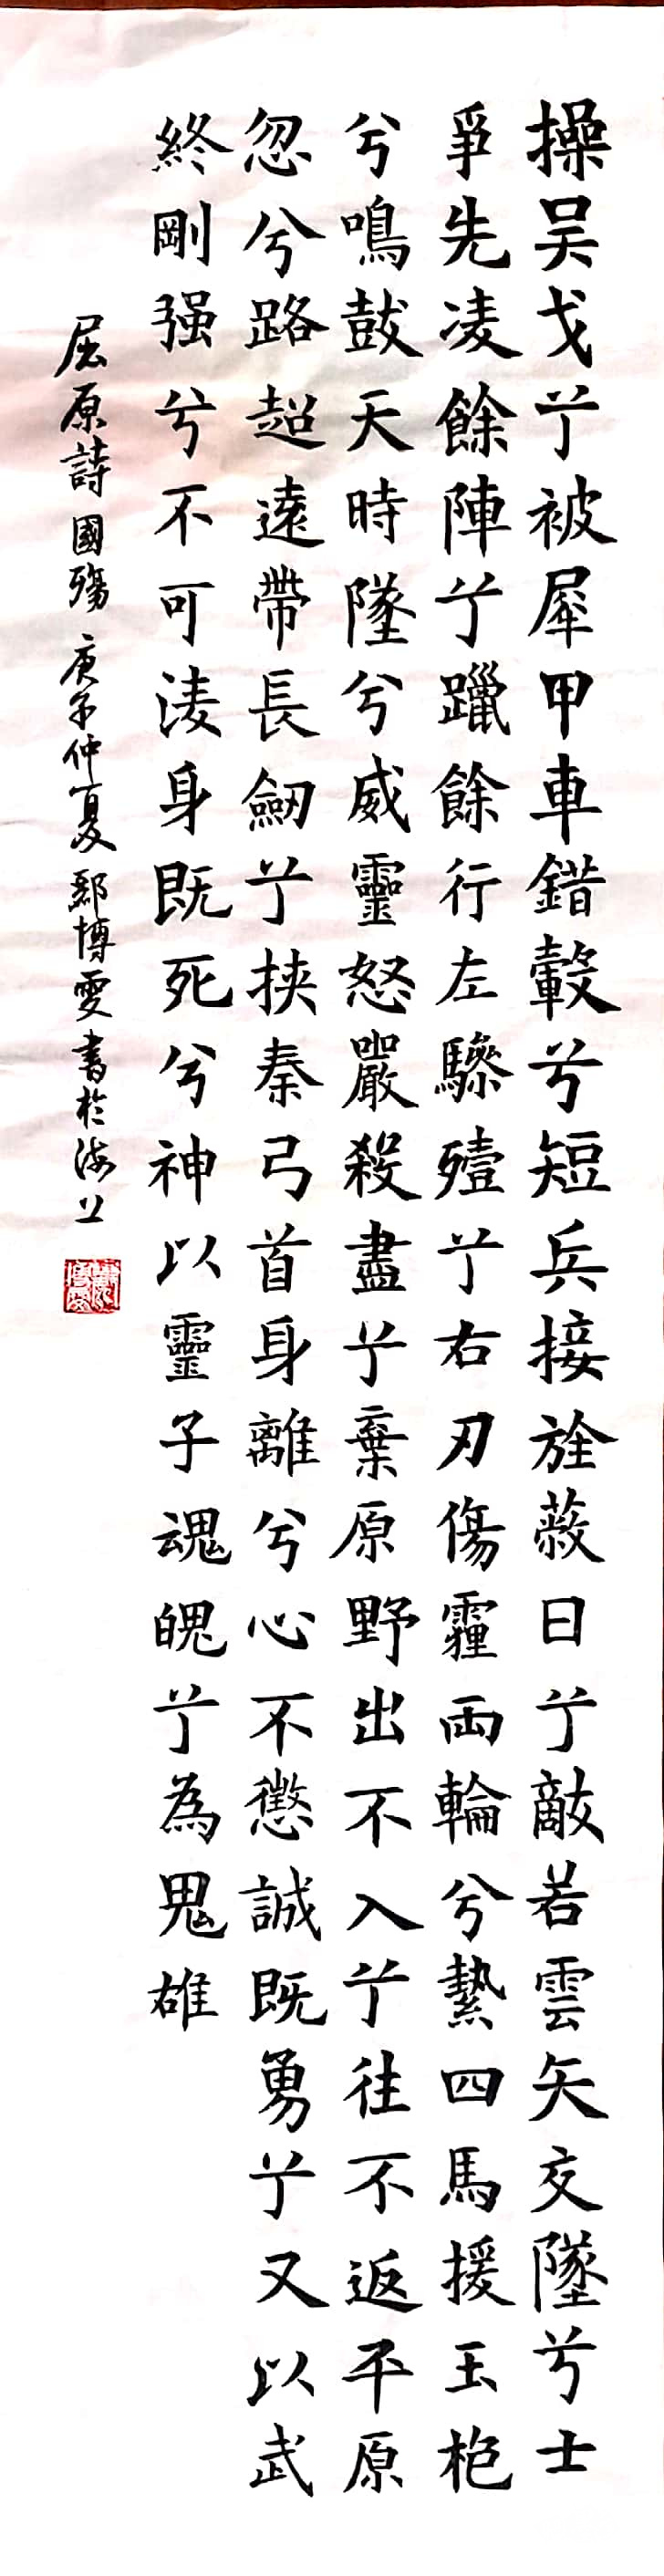 操吴戈兮被犀甲車錯轂兮短兵接旌蔽日兮敵若雲矢交墜兮士
爭先凌餘陣兮躐餘行左驂殪兮右刃傷霾兩輪兮縶四馬援玉枹
兮鳴鼓天時墜兮威靈怒嚴殺盡兮棄原野出不入兮往不返平原
忽兮路超遠帶長劒兮挾秦弓首身離兮心不懲誠既勇兮又以武
終剛强兮不可淩身既死兮神以靈子魂魄兮為鬼雄
屈原詩國殤 庚子仲夏 鄒博雯書於海上